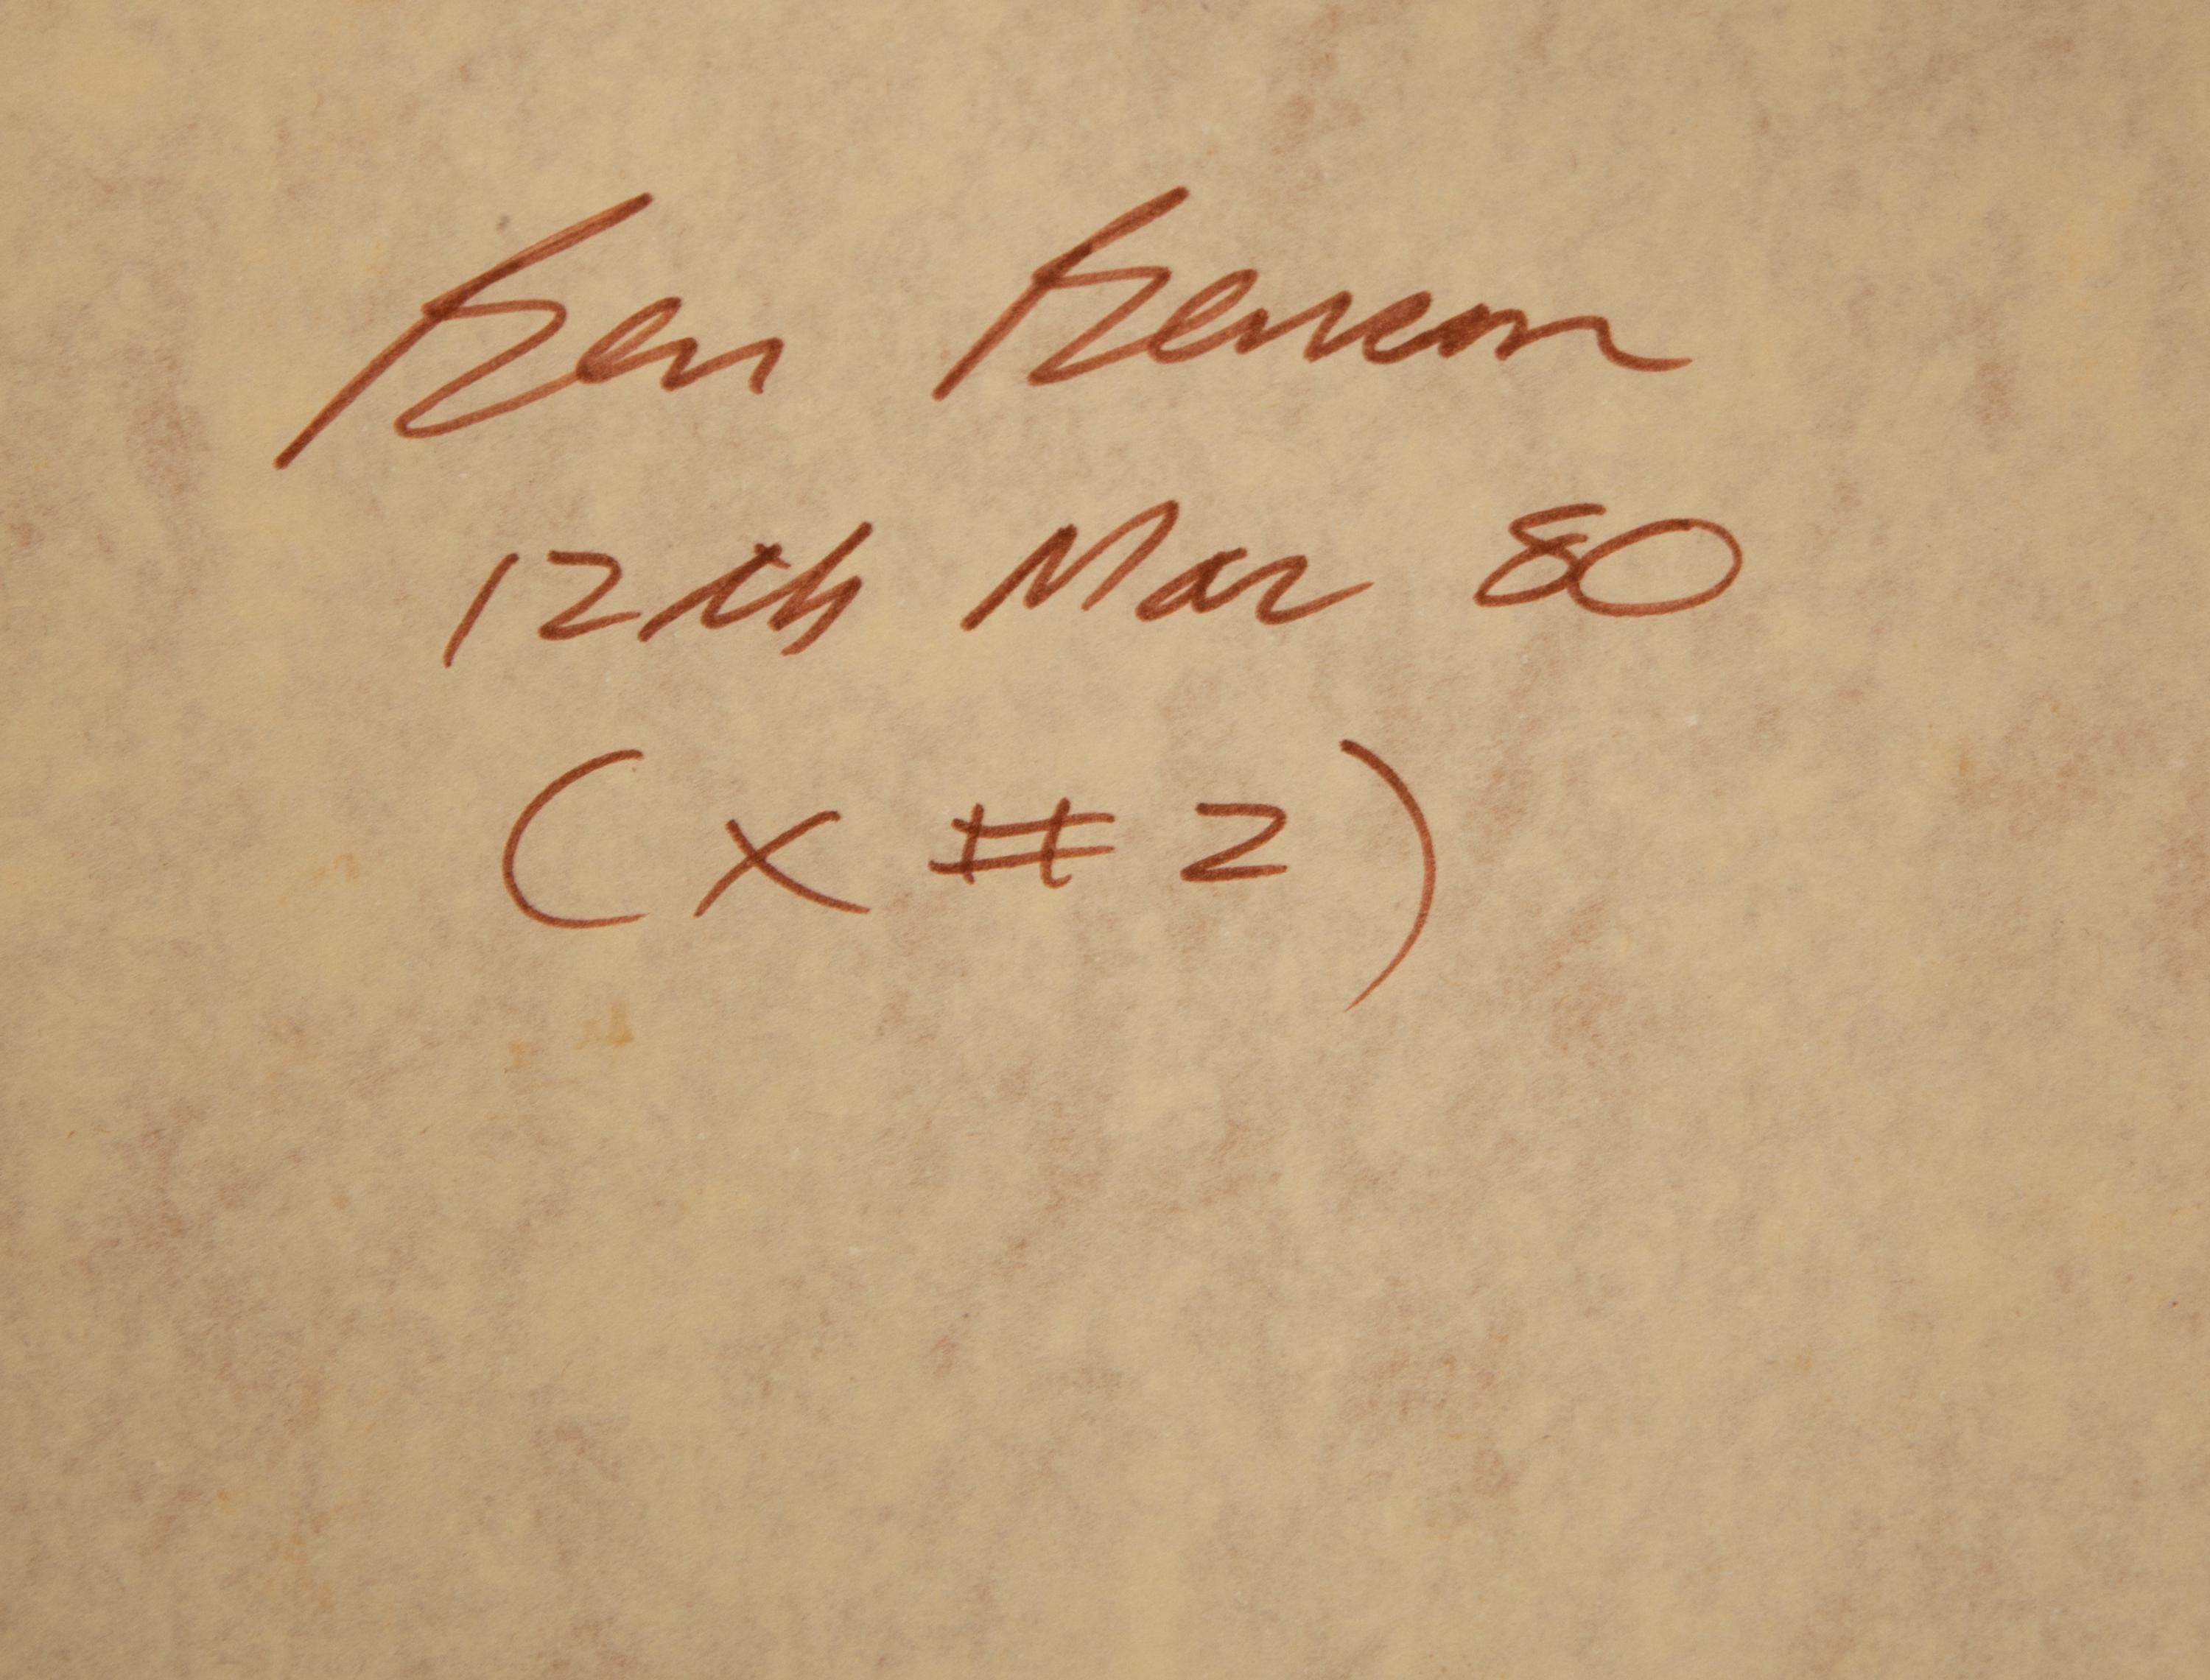 Ken
12th Mar 80
(x # 2)